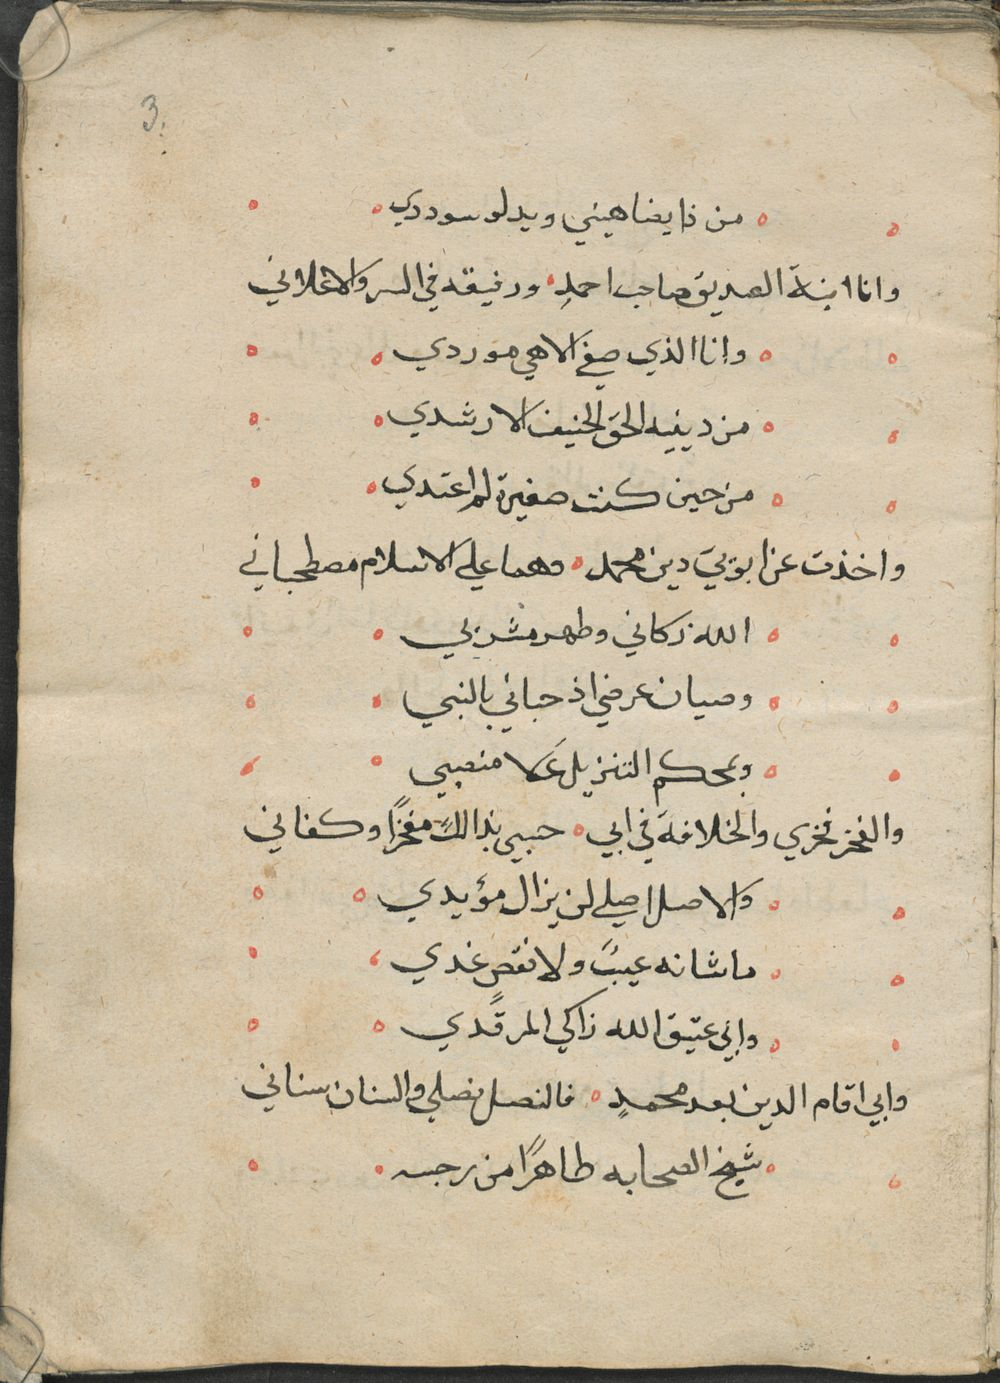 3
من ذا يضاهيني ويدلو سوددي
وانا ابنة الصديق صاحب احمدِ ورفيقه في السر والاعلاني
وانا الذي صفي الاهي موردي
من دينيه الحق الحنيف الارشدي
من حين كنت صغيرة لم اعتدي
واخذت عن ابويَّ دين محمد وهما على الاسلام مصطحباني
الله زكاني وطهر مشربي
وصيان عرضي اذ حباني بالنبي
وبمحكم التنزيل عَلا منصبي
والفخر فخري والخلافةَ في ابي حسبي بذالك مفخراً وكفاني
والاصل اصلي لن يزال مؤيدي
ما شانه عيبٌ ولا نقصٍ غدي
وابي عتيق الله زاكي المرقدي
وابي اقام الدين بعد محمدٍ فالنصل نصلي والسنان سناني
شيخ الصحابه طاهراً من رجسه